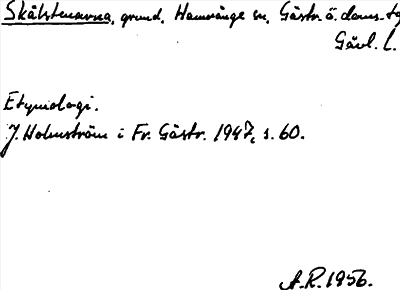 Skälstenarna, grund, Hamrånge sn, Gästr. ö. doms-tg
Gävl. l.
Etymologi.
J. Holmström i Fr. Gästr. 1947, s. 60.
A.R. 1956.